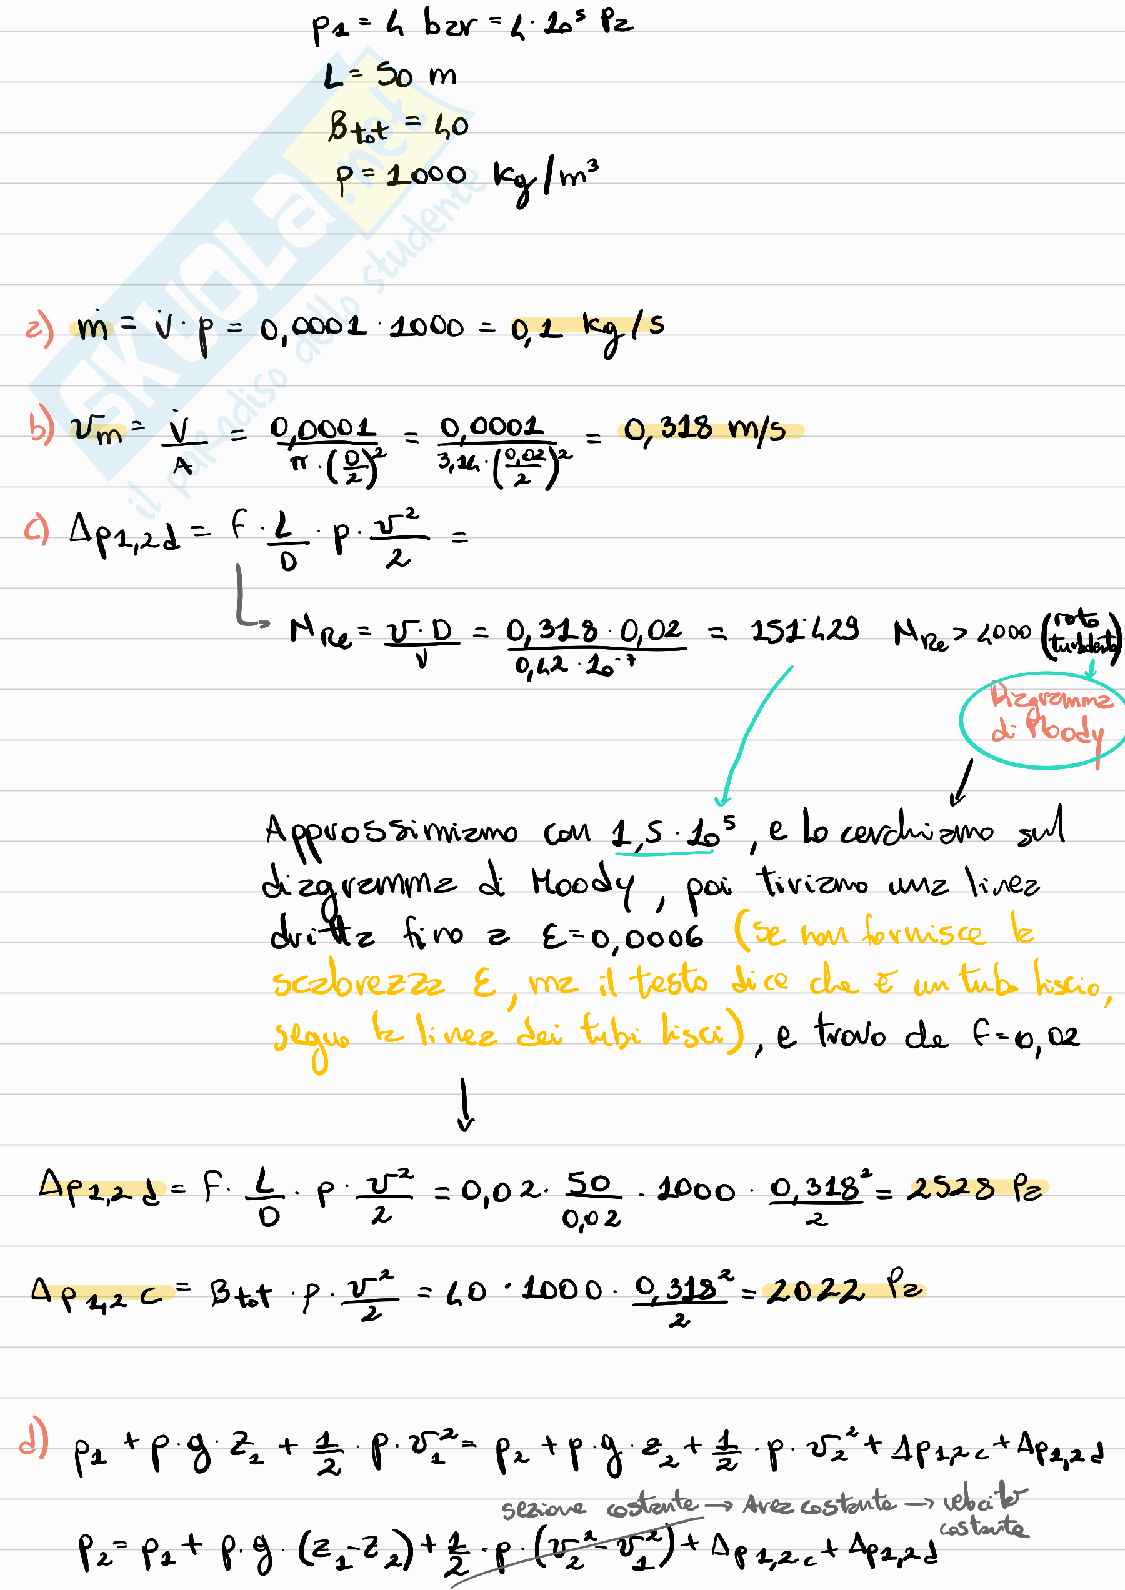 p1 = 4 bar = 4 · 10⁵ Pa
L = 50 m
βtot = 40
ρ = 1000 kg/m³
SKUOLA.net
il paradiso dello studente
a) ṁ = V̇ · ρ = 0,0001 · 1000 = 0,1 kg/s
b) vm = V̇/A = 0,0001/(π · (D/2)²) = 0,0001/(3,14 · (0,02/2)²) = 0,318 m/s
c) Δp1,2d = f · L/D · ρ · v²/2 =
NRe = v · D/ν = 0,318 · 0,02/(0,42 · 10⁻⁷) = 151429 NRe > 4000 (moto turbolento)
Diagramma
di Moody
Approssimiamo con 1,5 · 10⁵, e lo cerchiamo sul
diagramma di Moody, poi tiriamo una linea
dritta fino a ε = 0,0006 (se non fornisce la
scabrezza ε, ma il testo dice che è un tubo liscio,
seguo la linea dei tubi lisci), e trovo da f = 0,02
Δp1,2 d = f · L/D · ρ · v²/2 = 0,02 · 50/0,02 · 1000 · 0,318²/2 = 2528 Pa
Δp1,2 c = βtot · ρ · v²/2 = 40 · 1000 · 0,318²/2 = 2022 Pa
d) p1 + ρ · g · z1 + 1/2 · ρ · v1² = p2 + ρ · g · z2 + 1/2 · ρ · v2² + Δp1,2c + Δp1,2d
sezione costante → Area costante → velocità
costante
p2 = p1 + ρ · g · (z1 - z2) + 1/2 · ρ · (v2² - v1²) + Δp1,2c + Δp1,2d